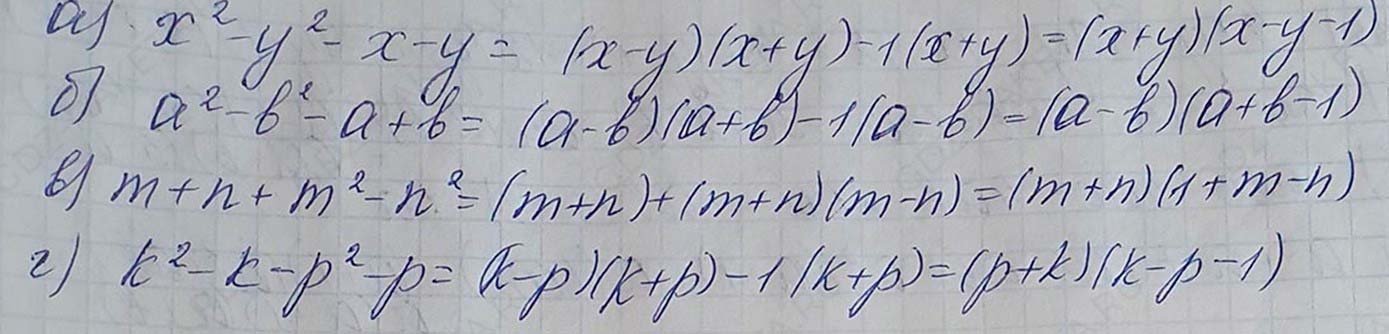 а) x² - y² - x - y = (x-y)(x+y) - 1(x+y) = (x+y)(x-y-1)
б) a² - b² - a + b = (a-b)(a+b) - 1(a-b) = (a-b)(a+b-1)
в) m + n + m² - n² = (m+n) + (m+n)(m-n) = (m+n)(1+m-n)
г) k² - k - p² - p = (k-p)(k+p) - 1(k+p) = (p+k)(k-p-1)